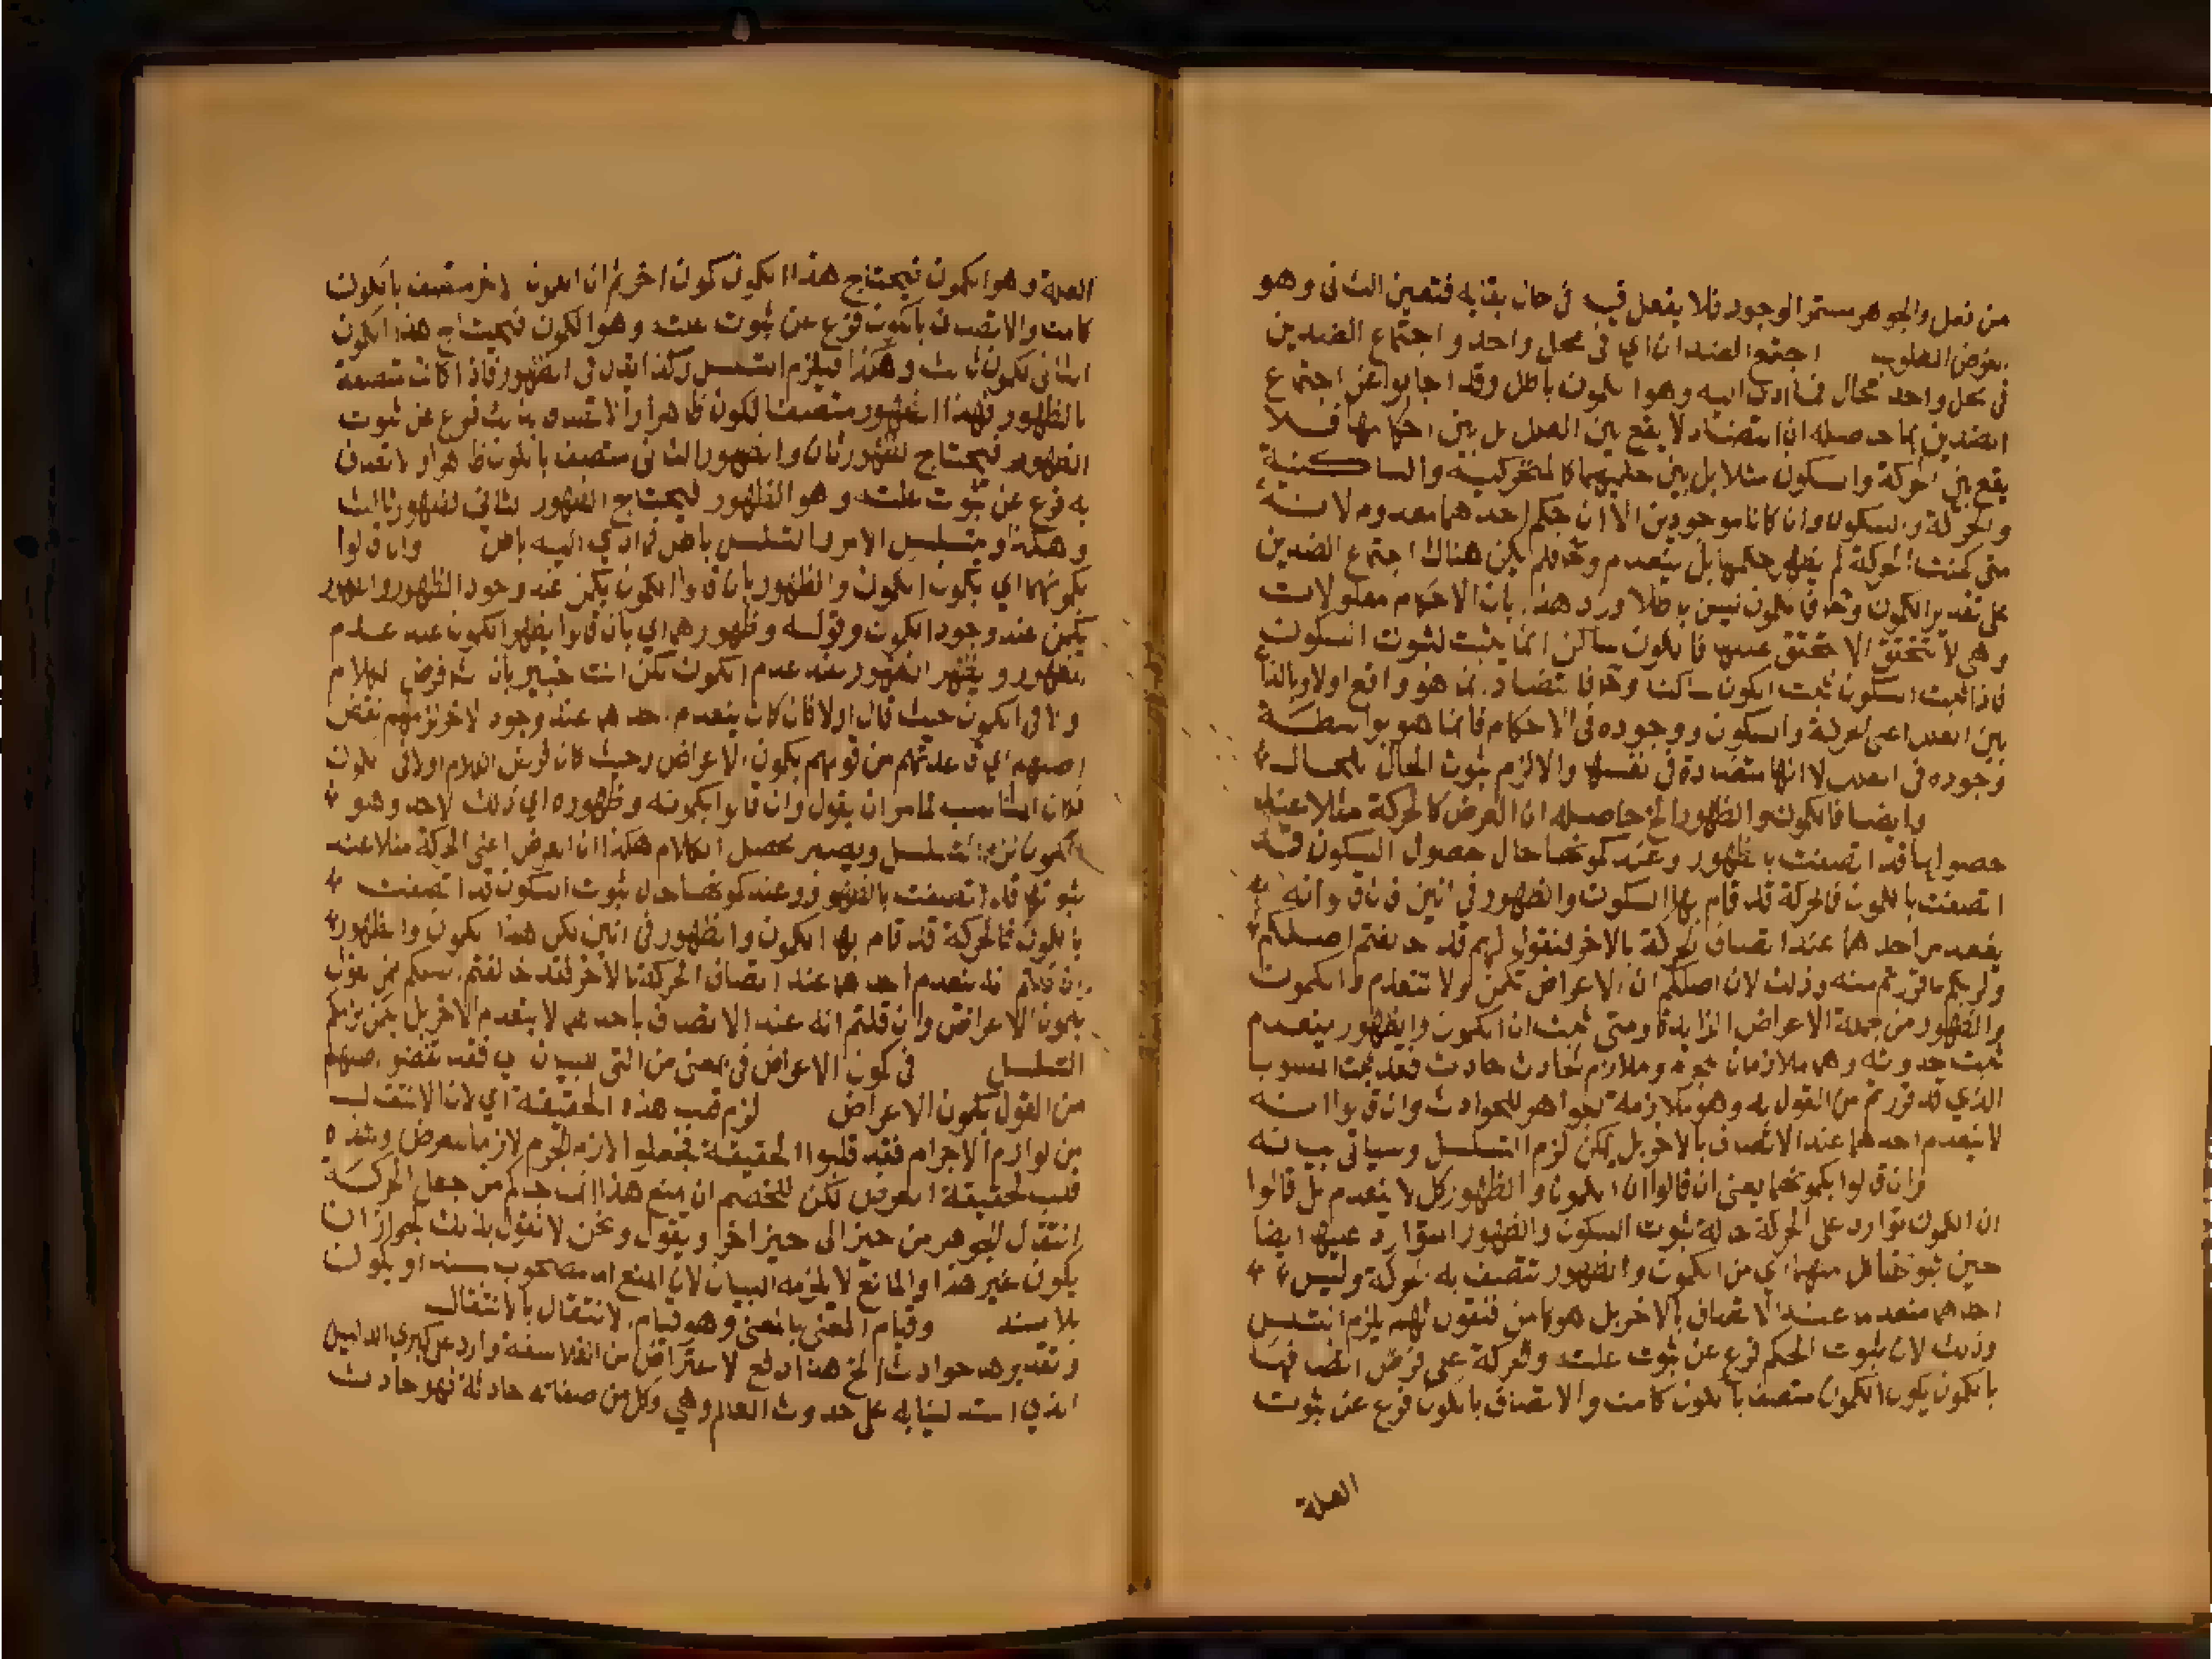 من فعل والجوهر مستمر الوجود فلا يفعل فيه في حال بقائه فتعين الثاني وهو
اجتمع الضدان اي في محل واحد و اجتماع الضدين
في محل واحد محال فما ادى اليه وهو الكمون باطل وقد اجابوا عن اجتماع
الضدين بما حاصله ان التضاد لا يقع بين العلل بل بين احكامها فلا
يقع بين الحركة والسكون مثلا بل بين حكميهما كالمتحركية والساكنية
والحركة والسكون وان كانا موجودين الا ان حكم احدهما معدوم لانه
متى كمنت الحركة لم يظهر حكمها بل ينعدم وح فلم يكن هناك اجتماع الضدين
على تقدير الكمون وح فالكمون ليس باطلا ورد هذا بان الاحكام معلولات
وهي لا تتحقق الا بتحقق عللها فالكون ساكن انما يثبت لثبوت السكون
فاذا ثبت السكون ثبت الكون ساكنا وح فالتضاد انما هو واقع اولا وبالذات
بين العلل اعني الحركة والسكون ووجوده في الاحكام فانما هو بواسطة
وجوده في العلل لا انها متضادة في نفسها والا لزم ثبوت الحال للحال
وايضا فالكمون والظهور الخ حاصله ان العرض كالحركة مثلا عند
حصولها قد اتصفت بالظهور وعند كونها حال حصول السكون قد
اتصفت بالكمون فالحركة قد قام بها السكون والظهور في انين فان قالوا انه
ينعدم احدهما عند اتصاف الحركة بالاخر لنقول لهم قد خالفتم اصلكم
ولزمكم ما فررتم منه وذلك لان اصلكم ان الاعراض تكمن ولا تنعدم والكمون
والظهور من جملة الاعراض الزايدة ومتى ثبت ان الكمون والظهور ينعدم
ثبت حدوثه وهما ملازمان للجوهر وملازم الحادث حادث فقد ثبت المطلوب
الذي قد فررتم من القول به وهو ملازمة الجواهر للحوادث وان قالوا انه
لا ينعدم احدهما عند الاتصاف بالاخر بل يكمن لزم التسلسل وسياتي بيانه
وان قالوا بكمونهما يعني ان قالوا ان الكمون والظهور كل لا ينعدم بل قالوا
ان الكمون توارد على الحركة حالة ثبوت السكون والظهور توارد عليها ايضا
حين ثبوتها فكل منهما اي من الكمون والظهور تتصف به الحركة وليس
احدهما منعدما عند الاتصاف بالاخر بل هو كامن فنقول لهم يلزم التسلسل
وذلك لان ثبوت الحكم فرع عن ثبوت علته والحركة على فرض اتصافها
بالكمون يكون الكمون متصف بالكون كامنا والاتصاف بالكون فرع عن ثبوت
العلة
العلة وهو الكمون فيحتاج هذا الكمون لكمون اخر ثم ان الكمون الاخر متصف بالكون
كامنا والاتصاف بالكون فرع عن ثبوت علته وهو الكمون فيحتاج هذا الكمون
الثاني لكمون ثالث وهكذا فيلزم التسلسل وكذا يقال في الظهور فاذا كانت متصفة
بالظهور فهذا الظهور متصف بالكون ظاهرا والاتصاف بذلك فرع عن ثبوت
الظهور فيحتاج لظهور ثان والظهور الثاني متصف بالكون ظاهرا والاتصاف
به فرع عن ثبوت علته وهو الظهور فيحتاج الظهور الثاني لظهور ثالث
وهكذا ويتسلسل الامر والتسلسل باطل فما ادى اليه باطل وان قالوا
بكمونهما اي بكمون الكمون والظهور بان قالوا الكمون يكمن عند وجود الظهور والظهور
يكمن عند وجود الكمون وقوله وظهورهما اي بان قالوا يظهر الكمون عند عدم
الظهور ويظهر الظهور عند عدم الكمون لكن انت خبير بان فرض الكلام
اولا في الكمون حيث قال اولا فان كان ينعدم احدهما عند وجود الاخر لزمهم نقض
اصلهم اي قاعدتهم من قولهم بكمون الاعراض وحيث كان فرض الكلام اولا في الكمون
فكان المناسب لما مر ان يقول وان قالوا بكمونه وظهوره اي ذلك الاحد وهو
الكمون لزم التسلسل ويصير محصل الكلام هكذا ان العرض اعني الحركة مثلا عند
ثبوتها قد اتصفت بالظهور وعند كونها حال ثبوت السكون قد اتصفت
بالكمون فالحركة قد قام بها الكمون والظهور في انين لكن هذا الكمون والظهور
ان قلتم انه ينعدم احدهما عند اتصاف الحركة بالاخر لقد خالفتم اصلكم من القول
بكمون الاعراض وان قلتم انه عند الاتصاف باحدهما لا ينعدم الاخر بل يكمن لزمكم
التسلسل في كون الاعراض في بمعنى من التي للبيان فقد نقضوا اصلهم
من القول بكمون الاعراض لزم قلب هذه الحقيقة اي لان الانتقال
من لوازم الاجرام فقد قلبوا الحقيقة فجعلوا لازم الجرم لازما للعرض وهذا
قلب لحقيقة العرض لكن للخصم ان يمنع هذا انتم جعل الحركة
انتقال الجوهر من حيز الى حيز اخر ويقول ونحن لا نقول بذلك لجواز ان
يكون غير هذا والمانع لا يلزمه البيان لان المنع اما مصحوب بسند او يكون
بلا سند وقيام المعنى بالمعنى وهو قيام الانتقال بالانتقال
وتقدير هذا حوادث الخ هذا دفع لاعتراض من الفلاسفة وارد على كبرى الدليل
الذي استدلينا به على حدوث العالم وهي وكل من صفاته حادثة فهو حادث